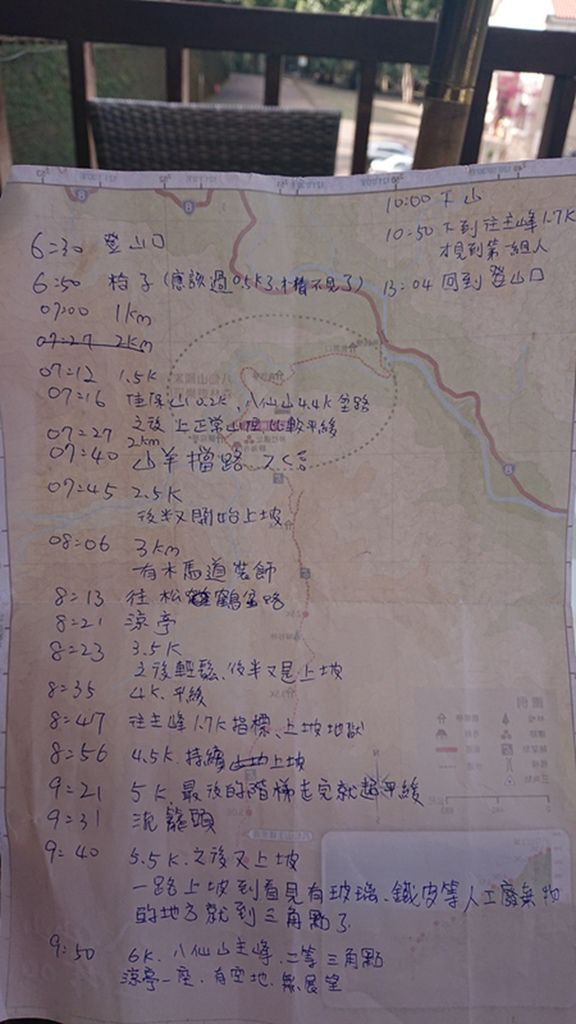 6:30 登山口
6:50 椅子(應該過0.5K了, 木樁不見了)
07:00 1km
07:27 2km
07:12 1.5K
07:16 佳保山0.2K、八仙山4.4K岔路
之後上正常山徑, 比較平緩
07:27 2km
07:40 山羊擋路
07:45 2.5K
後半又開始上坡
08:06 3km
有木馬道裝飾
8:13 往松鶴岔路
8:21 涼亭
8:23 3.5K
之後輕鬆、後半又是上坡
8:35 4K. 平緩
8:47 往主峰1.7K指標、上坡地獄
8:56 4.5K. 持續上坡
9:21 5K 最後的階梯走完就超平緩
9:31 流籠頭
9:40 5.5K. 之後又上坡
一路上坡到看見有玻璃、鐵皮等人工廢棄物
的地方就到三角點了
9:50 6K. 八仙山主峰、二等三角點
涼亭一座. 有空地. 無展望
10:00 下山
10:50 下到往主峰1.7K
才見到第一組人
13:04 回到登山口